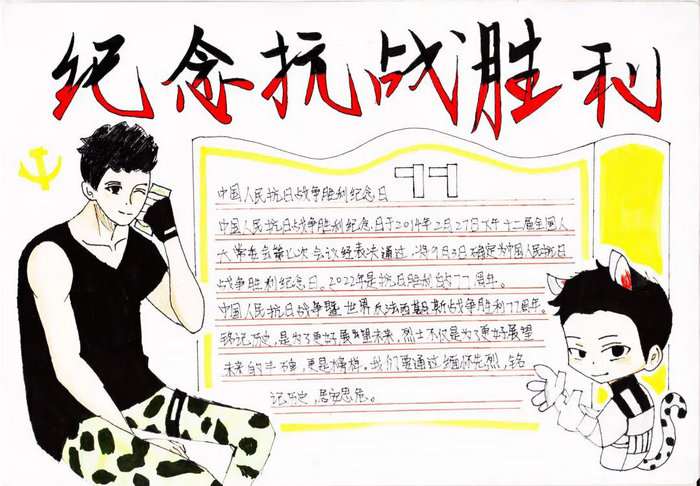 纪念抗战胜利
77
中国人民抗日战争胜利纪念日
中国人民抗日战争胜利纪念日于2014年2月27日下午十二届全国人
大常委会第七次会议经表决通过，将9月3日确定为中国人民抗日
战争胜利纪念日。2022年是抗日胜利战77周年。
中国人民抗日战争暨世界反法西斯战争胜利77周年。
铭记历史，是为了更好展望未来，烈士不仅是为了更好展望
未来的丰碑，更是榜样。我们要通过缅怀先烈，铭
记历史，居安思危。